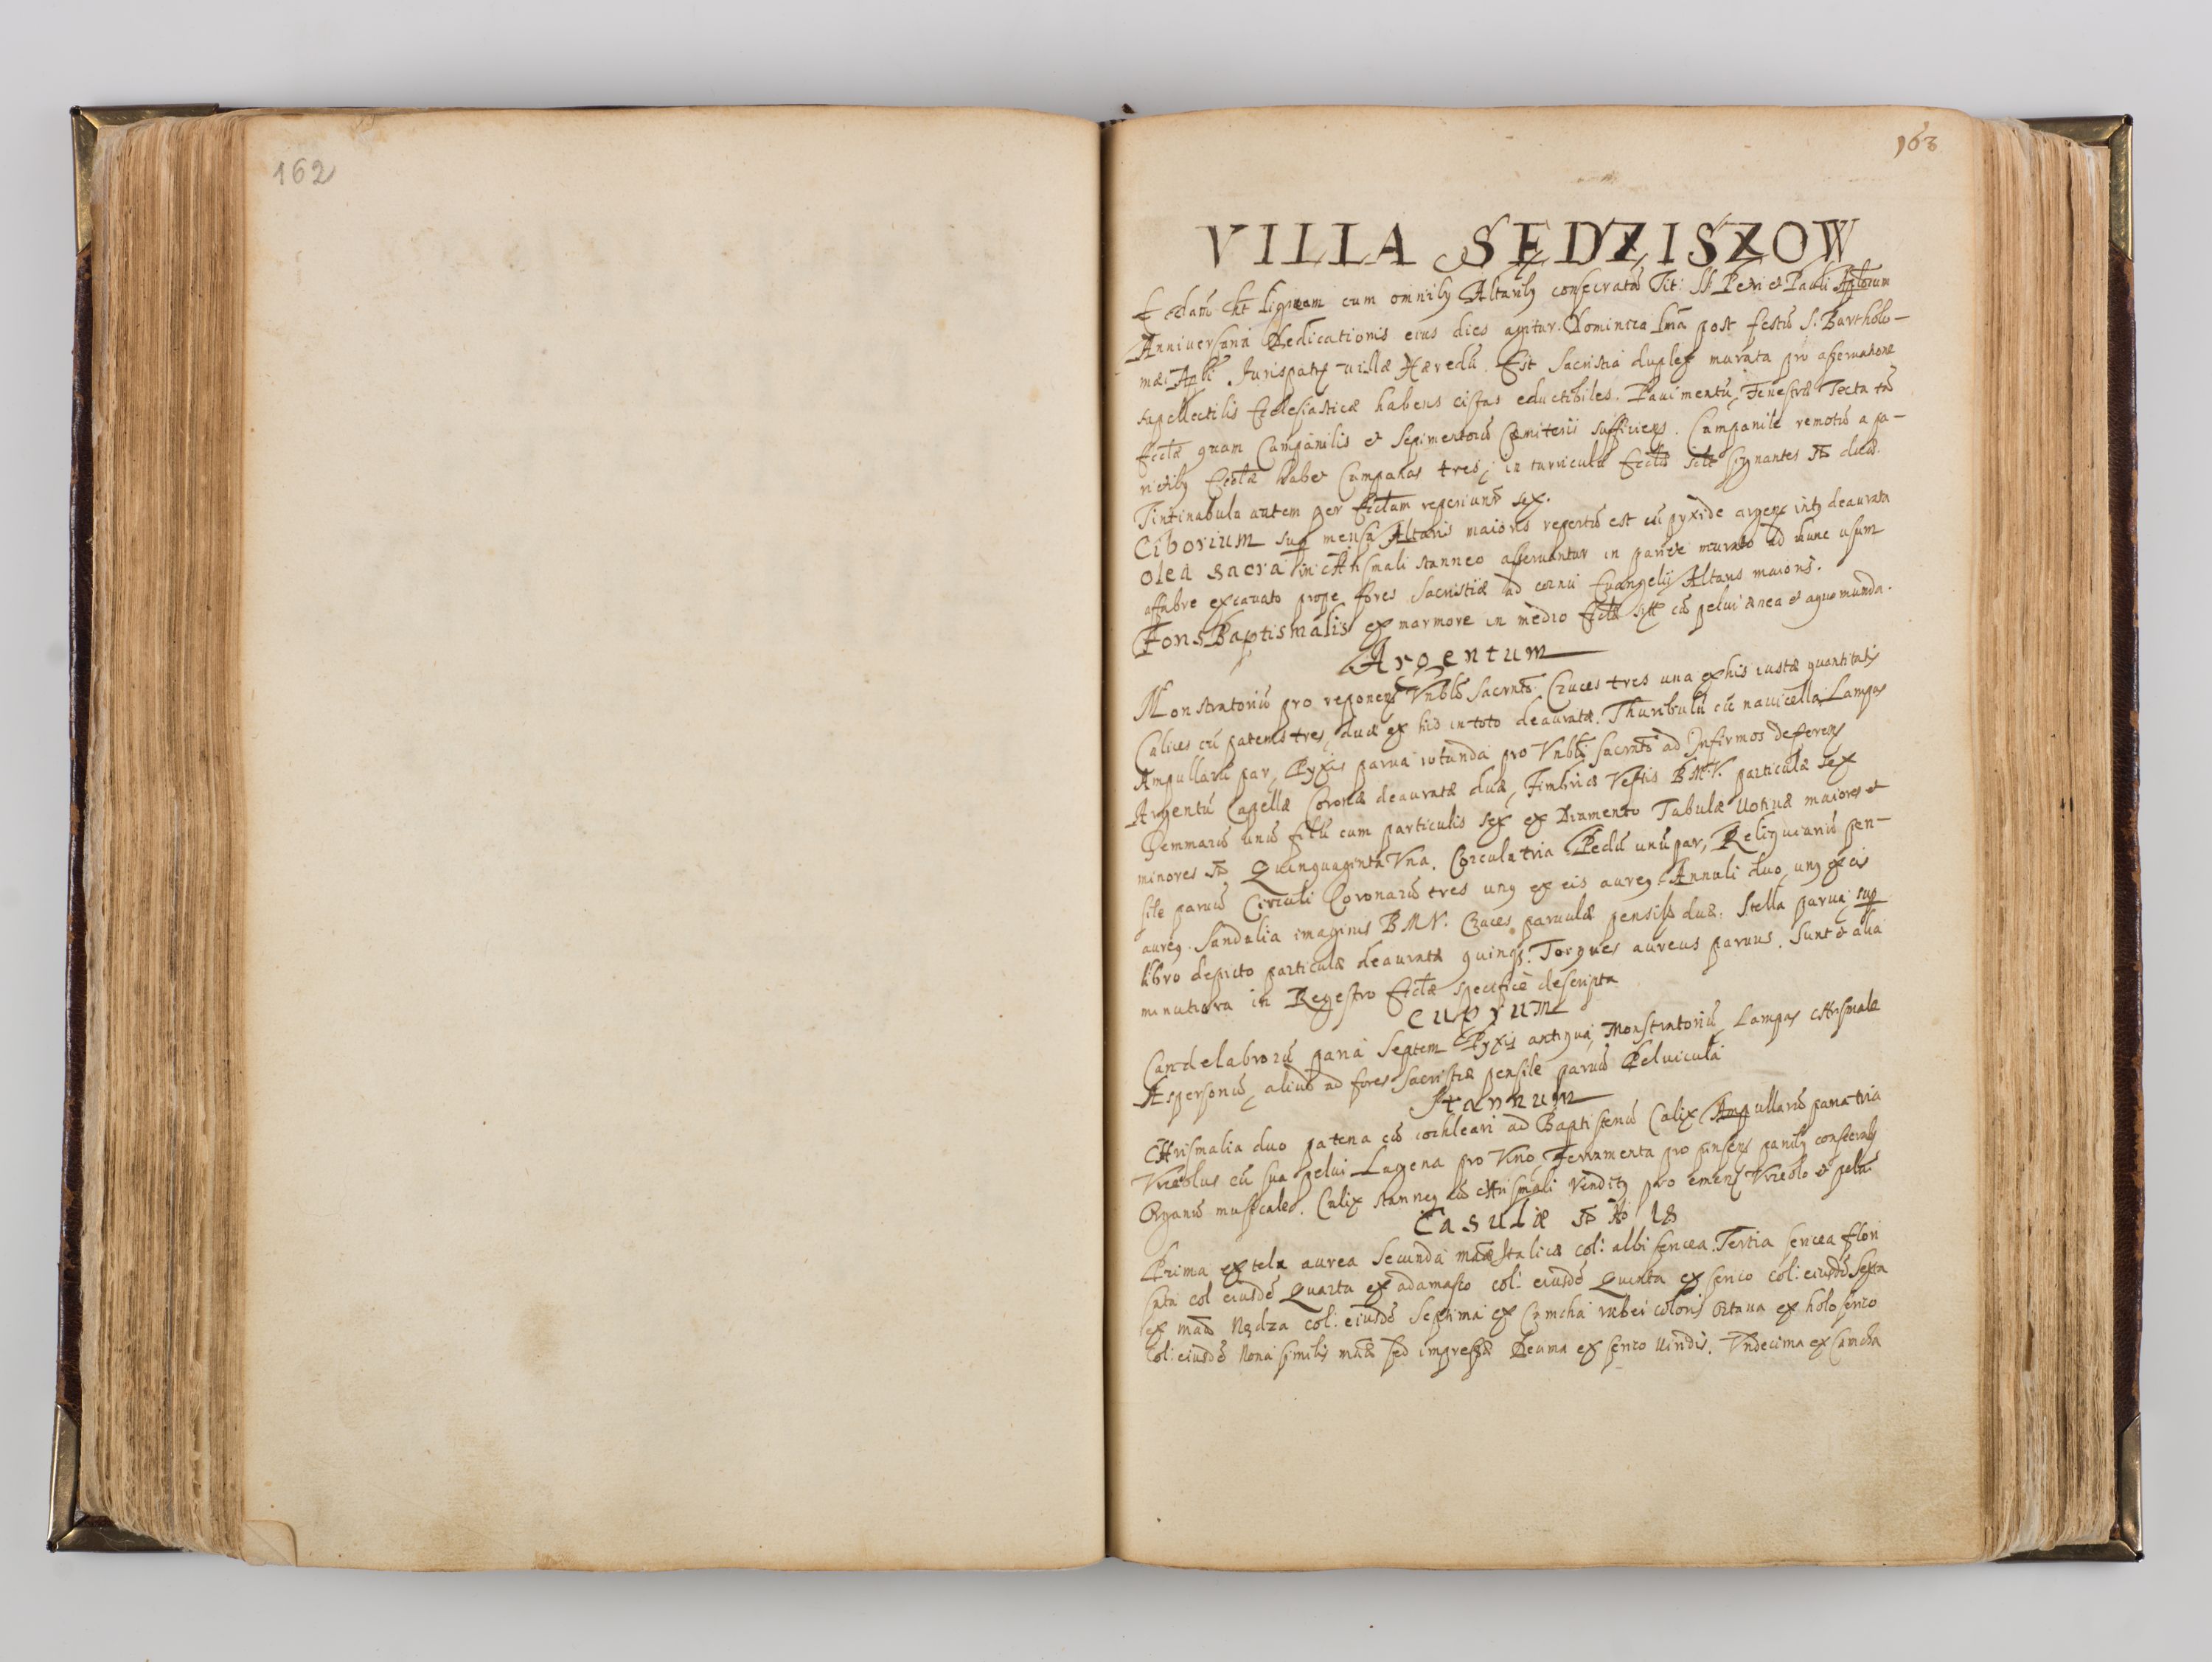 162
163
VILLA SĘDZISZOW
Ecclam hẽt ligneam cum omnibq Altaribq consecratã Tit: SS Petri et Pauli Aplorum
Anniversaria Dedicationis eius dies agitur Dominica Ima post festũ S. Bartholo-
mæi Apli. Jurispatq villæ Hæredũ. Est Sacristia duplex murata pro asservatione
supellectilis Ecclesiasticæ habens cistas eductibiles. Pavimentũ, Fenestræ Tecta tã
Ecclæ quam Campanilis et Sepimentorũ Cæmiterii sufficiens. Campanile remotũ a pa-
rietibq Ecclæ habet Campanas tres, in turricula Ecclæ signantes st duæ.
Tintinabula autem per Ecclam reperiunt sex.
Ciborium sup mensa Altaris maioris repertũ est cũ pyxide argen: intq deaurata
Olea Sacra in chrismali stanneo asservantur in pariete murato ad hunc usum
affabre excavato prope fores Sacristiæ ad cornu Evangelii Altaris maioris.
Fons Baptismalis ex marmore in medio Ecclæ cũ pelvi ænea et aqua munda.
Argentum
Monstratoriũ pro reponen Vnbli Sacrnto. Cruces tres una ex his iustæ quantitatis
Calices cũ patenis tres, duæ ex his in toto deauratæ. Thuribulũ cũ navicella Lampas
Ampullarũ par, Pyxis parva rotunda pro Vnbli Sacrnto ad Infirmos deferen
Argentũ Capellæ Coronæ deauratæ duæ, Fimbriæ Vestis B.M.V. particulæ sex
Gemmarũ unũ filũ cum particulis sex ex Diamento Tabulæ votivæ maiores et
minores st Quinquaginta Vna. Corcula tria Pedũ unũ par, Reliquiariũ pen-
sile parvũ Circuli Coronarũ tres unq ex eis aureq Annuli duo, unq ex eis
aureq. Sandalia imaginis B M V. Cruces parvulæ pensiles duæ. Stella parva, sup
libro depicto particulæ deauratæ quinq. Torques aureus parvus. Sunt et alia
minutiora in Regestro Ecclæ specifice descripta
Cuprum
Candelabrorũ paria Septem Pyxis antiqua, Monstratoriũ, Lampas chrismale
Aspersoriũ, aliud ad fores Sacristiæ pensile parvũ Pelvicula
Stannum
Chrismalia duo patena cũ cochleari ad Baptisteriũ Calix Ampullarũ paria tria
Vrceolus cũ sua pelvi Lagena pro Vino Ferramenta pro pinsen panibq consecran
Organũ musicale. Calix stanneq cũ chrismali venditq pro emen Vrceolo et pelvi
Casulæ st No 18
Prima ex tela aurea Secunda matæ Italicæ col: albi sericea. Tertia sericea flori
sata col eiusdẽ Quarta ex adamasco col: eiusdẽ Quinta ex serico col: eiusdẽ Sexta
ex mata Nędza col: eiusdẽ Septima ex Camcha rubei coloris Octava ex holoserico
Col: eiusdẽ Nona similis matæ sed impressæ Decima ex serico viridis. Vndecima ex Camcha